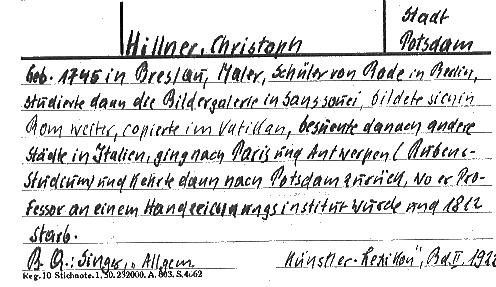 Stadt
Hillner, Christoph Potsdam
Geb. 1745 in Breslau, Maler, Schüler von Rode in Berlin,
studierte dann die Bildergalerie in Sanssouci, bildete sich in
Rom weiter, copierte im Vatikan, besuchte danach andere
Städte in Italien, ging nach Paris und Antwerpen (Rubens-
Studium) und kehrte dann nach Potsdam zurück, wo er Pro-
fessor an einem Handzeichnungsinstitut wurde und 1812
starb.
B. Q.: Singer, „Allgem. Künstler-Lexikon", Bd. II, 1922
Reg. 10 Stichnote. 1, 50. 232000. A. 803. S. 4062